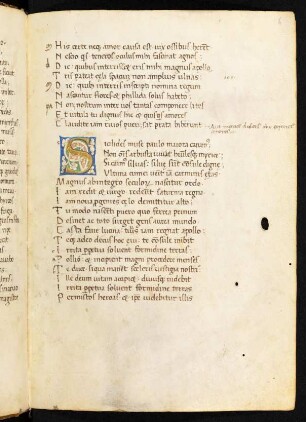 His certe neq; amor causa est uix ossibus herent
Nescio quis teneros oculus mihi fascinat agnos
Dic quibus in terris & eris mihi magnus apollo
Tris pateat celi spacium non amplius ulnas
Dic quibus in terris inscripti nomina regum
Nascantur flores & phillida solus habeto
Non nostrum inter uos tantas componere lites
Et uitula tu dignus & hic & quisquis amores
Claudite iam riuos pueri sat prata biberunt
Sicelides muse paulo maiora canamus
Non omnes arbusta iuuant humilesq; myrice
Si canimus siluas silue sint consule digne
Ultima cumei uenit iam carminis etas
Magnus ab integro seclorum nascitur ordo
Iam redit & uirgo redeunt saturnia regna
Iam noua progenies celo demittitur alto
Tu modo nascenti puero quo ferrea primum
Desinet ac toto surget gens aurea mundo
Casta faue lucina tuus iam regnat apollo
Teq; adeo decus hoc eui te consule inibit
Pollio & incipient magni procedere menses
Te duce siqua manent sceleris uestigia nostri
Irrita perpetua soluent formidine terras
Ille deum uitam accipiet diuisq; uidebit
Permixtos heroas & ipse uidebitur illis